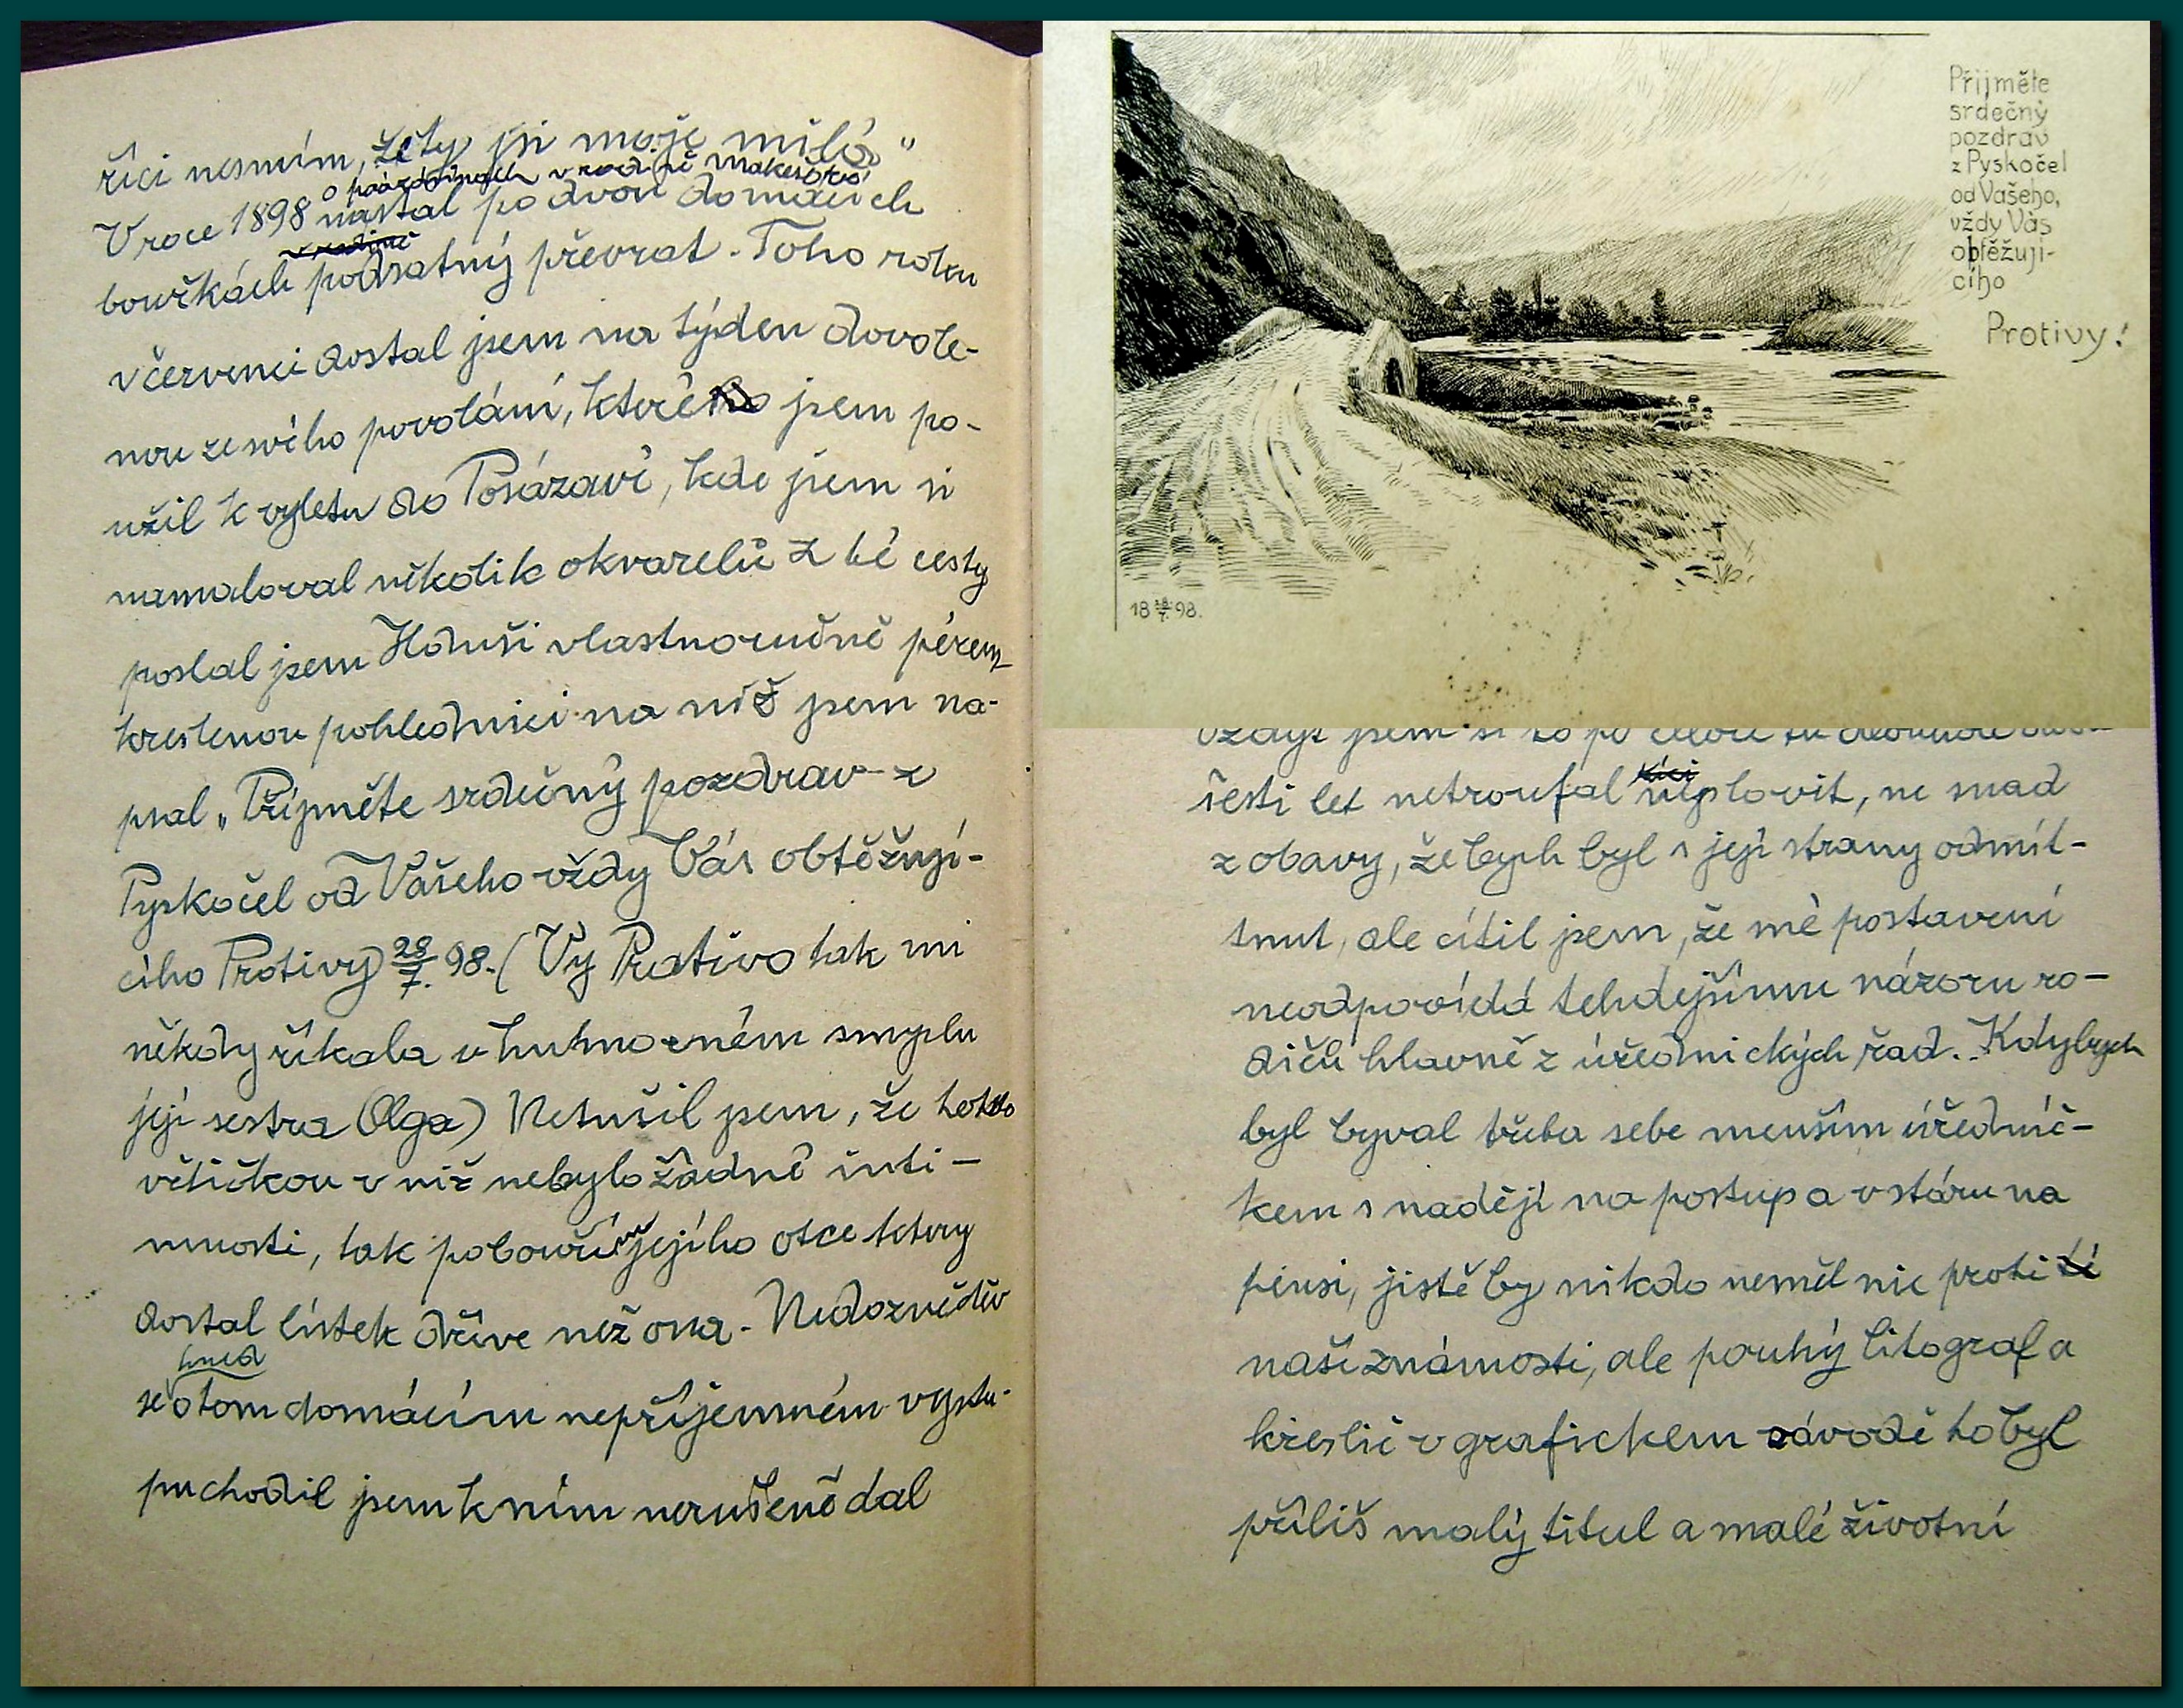 říci nesmím, že ty jsi moje milá"
o prázdninách v rodině Makešově
V roce 1898 nastal po dvou domácích
v rodině
bouřkách podstatný převrat. Toho roku
v červenci dostal jsem na týden dovole-
nou ze svého povolání, které jsem po-
užil k vyletu do Posázaví, kde jsem si
namaloval několik akvarelů z té cesty
poslal jsem Hduši vlastnoručně pérem
kreslenou pohlednici na níž jsem na-
psal „Přijměte srdečný pozdrav z
Pyskočel od Vašeho vždy Vás obtěžují-
cího Protivy) 28/7. 98. (Vy Protivo tak mi
někdy říkala v humorném smyslu
její sestra Olga) Netušil jsem, že touto
větičkou v níž nebylo žádné inti-
mnosti, tak pobouřím jejího otce ktery
dostal lístek dříve než ona. Nedozvěděv
hned
se o tom domácím nepříjemném vystu-
pu chodil jsem k ním nerušeně dal
Přijměte
srdečný
pozdrav
z Pyskočel
od Vašeho,
vždy Vás
obtěžují-
cího
Protivy!
18 28/7. 98.
vždyť jsem si to po celou tu dlouhou dobu
šesti let netroufal říci vyslovit, ne snad
z obavy, že bych byl s její strany odmít-
tnut, ale cítil jsem, že mé postavení
neodpovídá tehdejšímu názoru ro-
dičů hlavně z úřednických řad. Kdybych
byl byval třeba sebe menším úředníč-
kem s nadějí na postup a v stáru na
pensi, jistě by nikdo neměl nic proti té
naší známosti, ale pouhý litograf a
kreslič v grafickem závodě to byl
příliš malý titul a malé životní